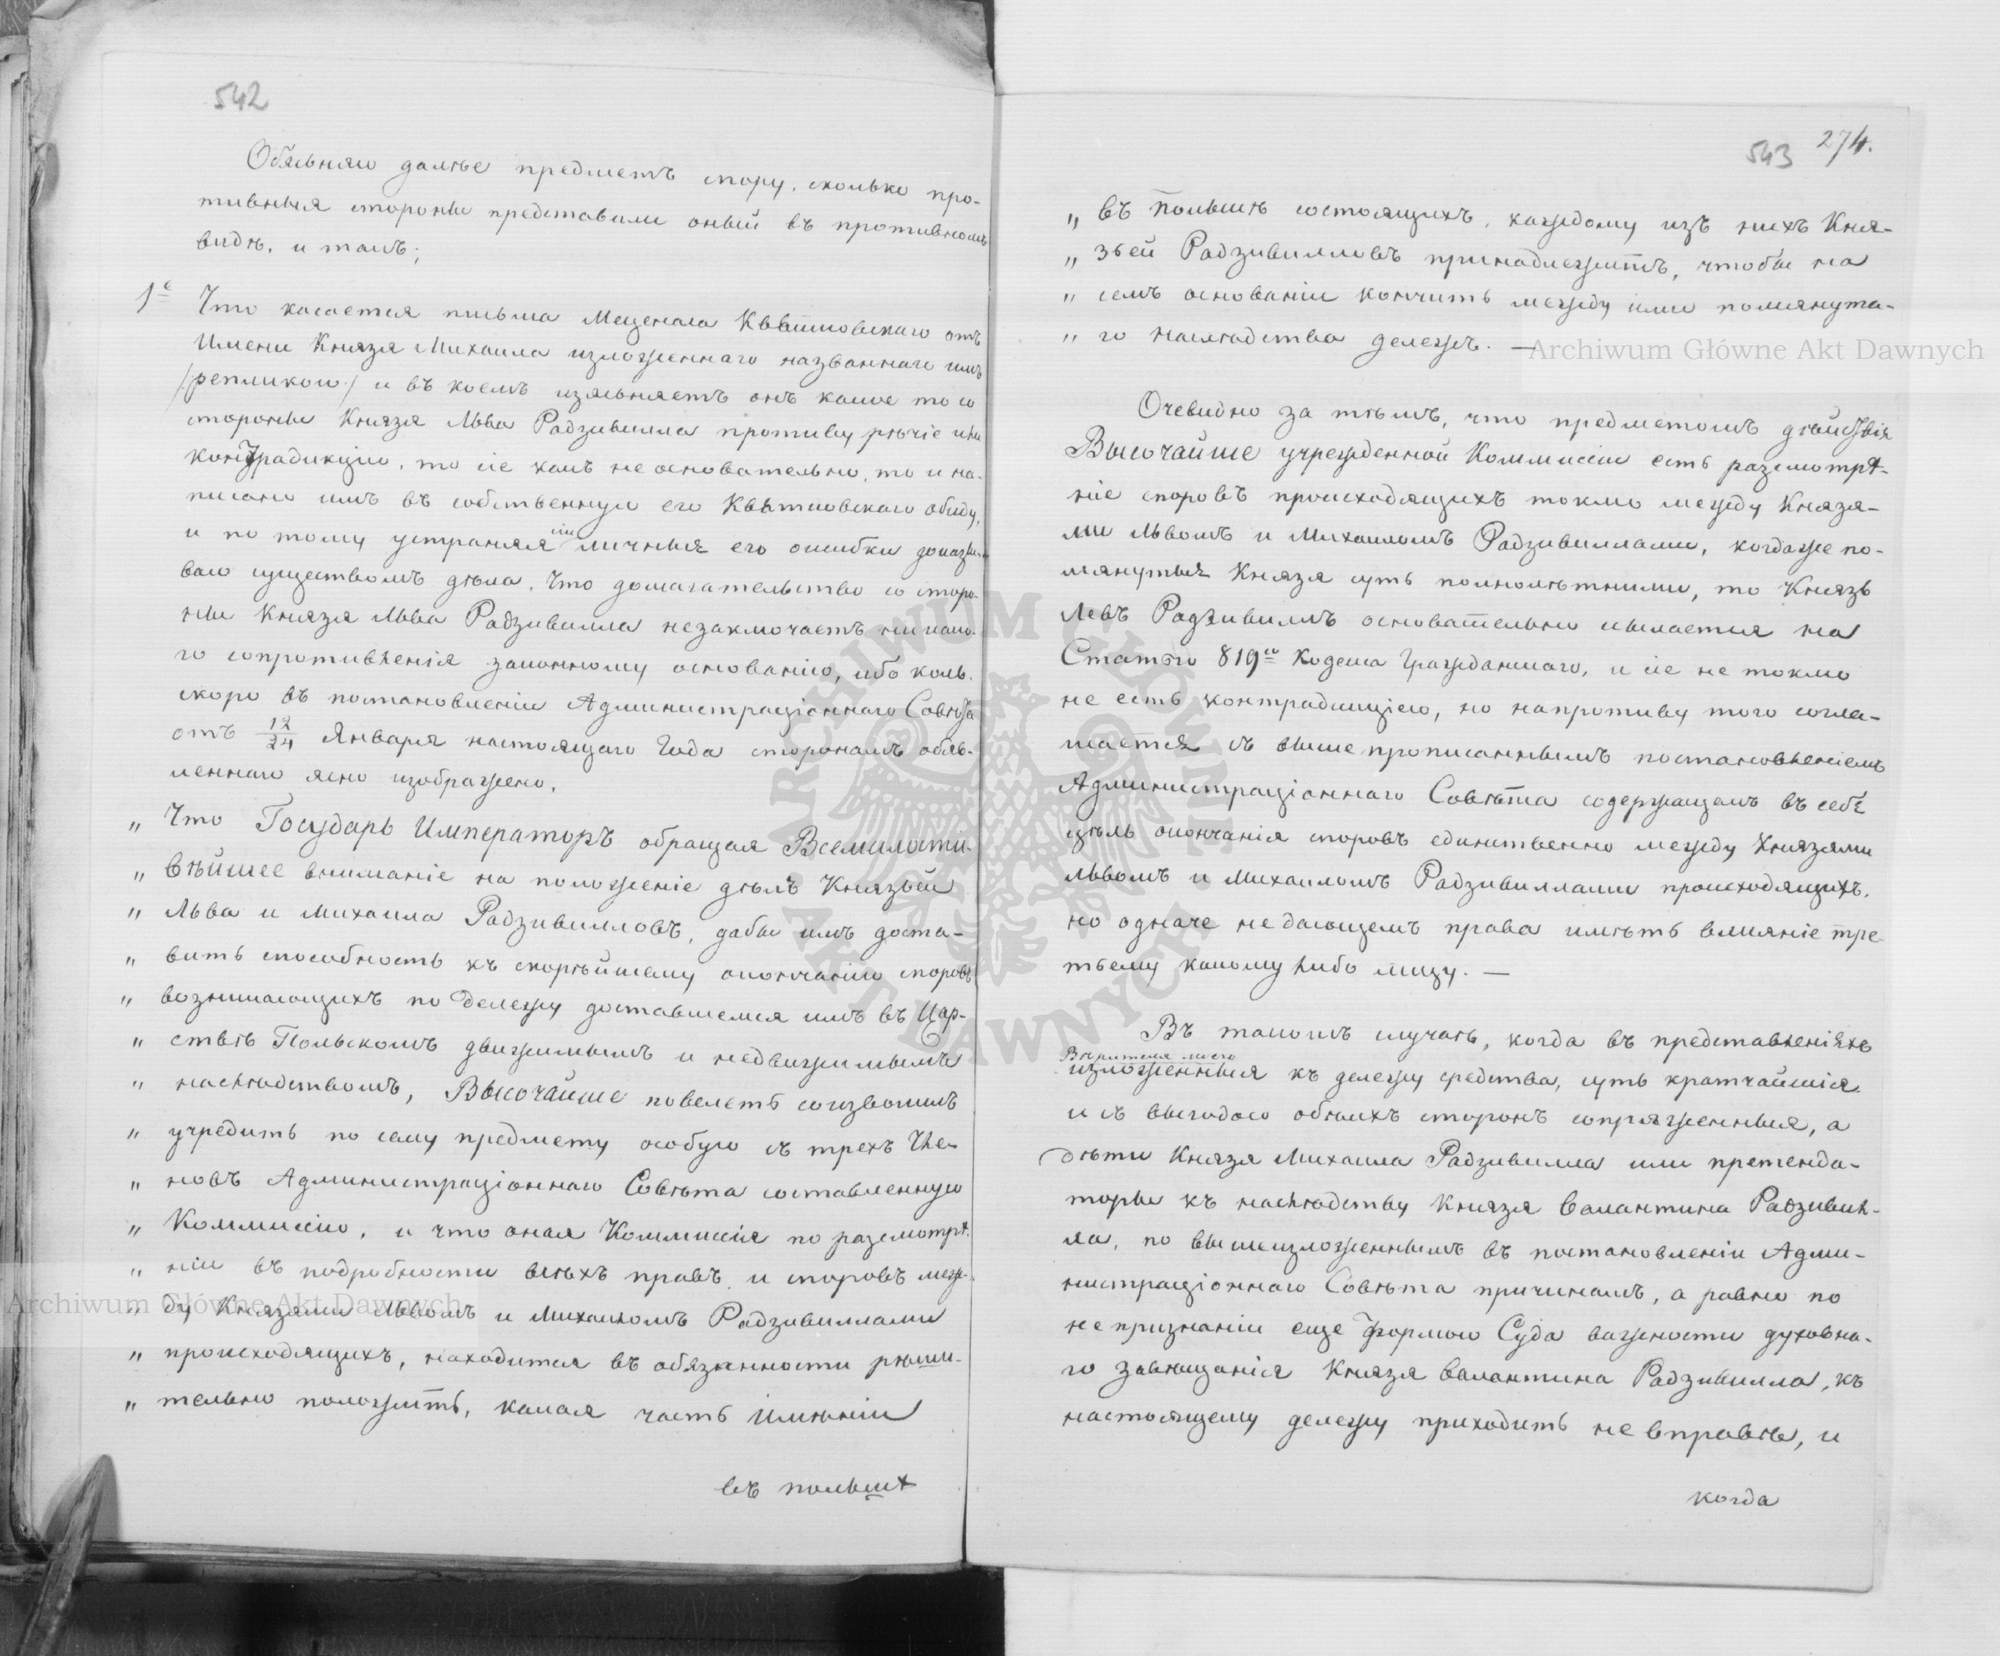 542
Объясняю далѣе предметъ спору, сколько про-
тивныя стороны представили оный въ противномъ
видѣ, и такъ;
1е Что касается письма Меценаса Квѣтковскаго отъ
Имени Князя Михаила изложеннаго названнаго имъ
/репликою/ и въ коемъ изъясняетъ онъ какое то со
стороны Князя Льва Радзивилла противурѣчіе или
контрадикцію, то сіе какъ не основательно, то и на-
писано имъ въ собственную его Квѣтковскаго обиду,
и по тому устраняя сіи личныя его ошибки доказы-
ваю существомъ дѣла, Что домагательство со сторо-
ны Князя Льва Радзивилла незаключаетъ никако-
го сопротивленія законному основанію, ибо коль-
скоро въ постановленіи Администраціоннаго Совѣта
отъ 12/24 Января настоящаго Года сторонамъ объяв-
леннаго ясно изображено,
„ Что Государь Императоръ обращая Всемилости-
„ вѣйшее вниманіе на положеніе дѣлъ Князьей
„ Льва и Михаила Радзивилловъ, дабы имъ доста-
„ вить способность къ скорѣйшему окончанію споровъ
„ возникающихъ по дележу доставшемся имъ въ Цар-
„ ствѣ Польскомъ движимымъ и недвижимымъ
„ наслѣдствомъ, Высочайше повелеть соизволилъ
„ учредить по сему предмету особую съ трехъ Чле-
„ новъ Администраціоннаго Совѣта составленную
„ Коммиссію, и что оная Коммиссія по разсмотрѣ-
„ ніи въ подробности всѣхъ правъ и споровъ меж-
„ ду Князями Львомъ и Михаиломъ Радзивиллами
„ происходящихъ, находится въ обязанности рѣши-
„ тельно положить, какая часть Имѣніи
въ польшѣ
543 274.
„ въ Польшѣ состоящихъ, каждому изъ нихъ Кня-
„ зьей Радзивилловъ принадлежитъ, чтобы на
„ семъ основаніи кончить между ими помянута-
„ го наслѣдства дележъ. —
Archiwum Główne Akt Dawnych
Очевидно за тѣмъ, что предметомъ дѣйствія
Высочайше учрежденной Коммиссіи есть разсмотрѣ-
ніе споровъ происходящихъ токмо между Князя-
ми Львомъ и Михаиломъ Радзивиллами, когдаже по-
мянутыя Князя суть полнолѣтними, то Князь
Левъ Радзивиллъ основательно ссылается на
Статью 819ю Кодекса Гражданскаго, и сіе не токмо
не есть контрадикціею, но напротиву того согла-
шается съ вышепрописаннымъ постановленіемъ
Администраціоннаго Совѣта содержащемъ въ себѣ
цѣль окончанія споровъ единственно между Князями
Львомъ и Михаиломъ Радзивиллами происходящихъ,
но одначе недающемъ права имѣть вліяніе тре-
тьему какому либо лицу. —
Въ такомъ случаѣ, когда въ представленіяхъ
Вѣрителя моего
изложенныя къ дележу средства, суть кратчайшія
и съ выгодою обѣихъ сторонъ сопряженныя, а
дѣти Князя Михаила Радзивилла или претенда-
торы къ наслѣдству Князя Валантина Радзивил-
ла, по вышеизложеннымъ въ постановленіи Адми-
нистраціоннаго Совѣта причинамъ, а равно по
непризнаніи еще формою Суда важности духовна-
го завѣщанія Князя Валантина Радзивилла, къ
настоящему дележу приходить не вправѣ, и
когда
Archiwum Główne Akt Dawnych
ARCHIWUM GŁÓWNE AKT DAWNYCH